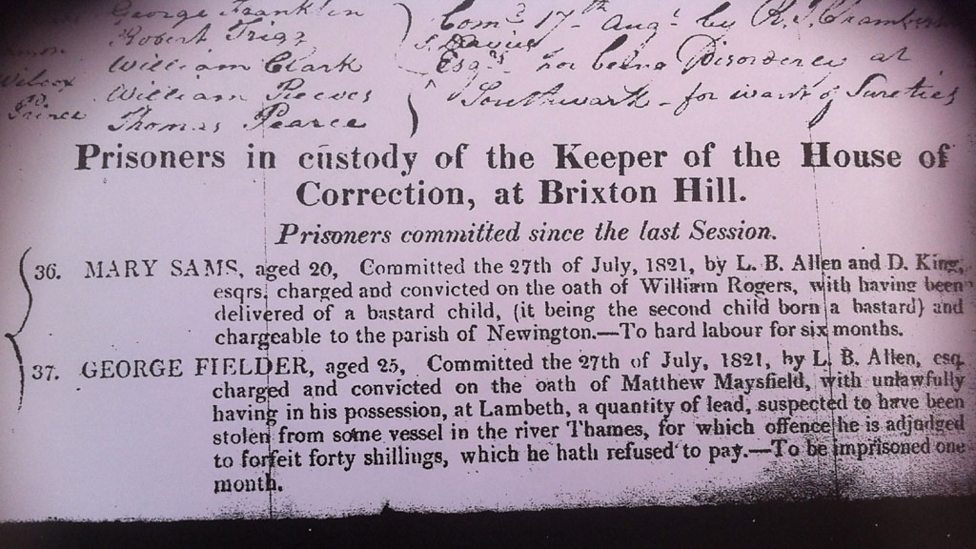 George Franklin
Robert Trigg
William Clark
Wilcox William Reeves
Prince Thomas Pearce
Com.d 17th Augt by R. J. Chambers
Esqrs for being Disorderly at
Southwark - for want of Sureties
Prisoners in custody of the Keeper of the House of
Correction, at Brixton Hill.
Prisoners committed since the last Session.
36. MARY SAMS, aged 20, Committed the 27th of July, 1821, by L. B. Allen and D. King,
esqrs. charged and convicted on the oath of William Rogers, with having been
delivered of a bastard child, (it being the second child born a bastard) and
chargeable to the parish of Newington.—To hard labour for six months.
37. GEORGE FIELDER, aged 25, Committed the 27th of July, 1821, by L. B. Allen, esq.
charged and convicted on the oath of Matthew Maysfield, with unlawfully
having in his possession, at Lambeth, a quantity of lead, suspected to have been
stolen from some vessel in the river Thames, for which offence he is adjudged
to forfeit forty shillings, which he hath refused to pay.—To be imprisoned one
month.